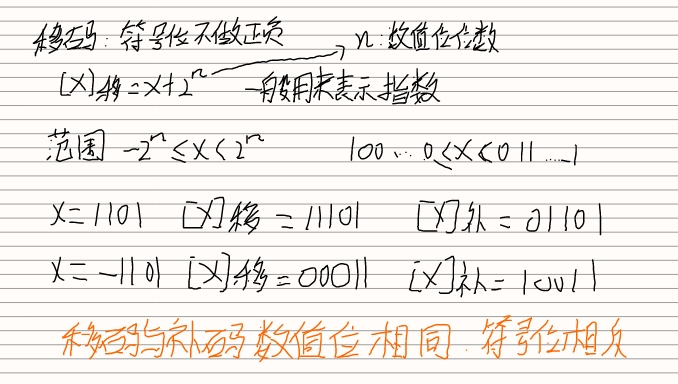 移码：符号位不做正负 n：数值位位数
[X]移=X+2ⁿ 一般用来表示指数
范围 -2ⁿ≤X<2ⁿ 100...0≤X≤011...1
X=1101 [X]移=11101 [X]补=01101
X=-1101 [X]移=00011 [X]补=10011
移码与补码数值位相同.符号位相反